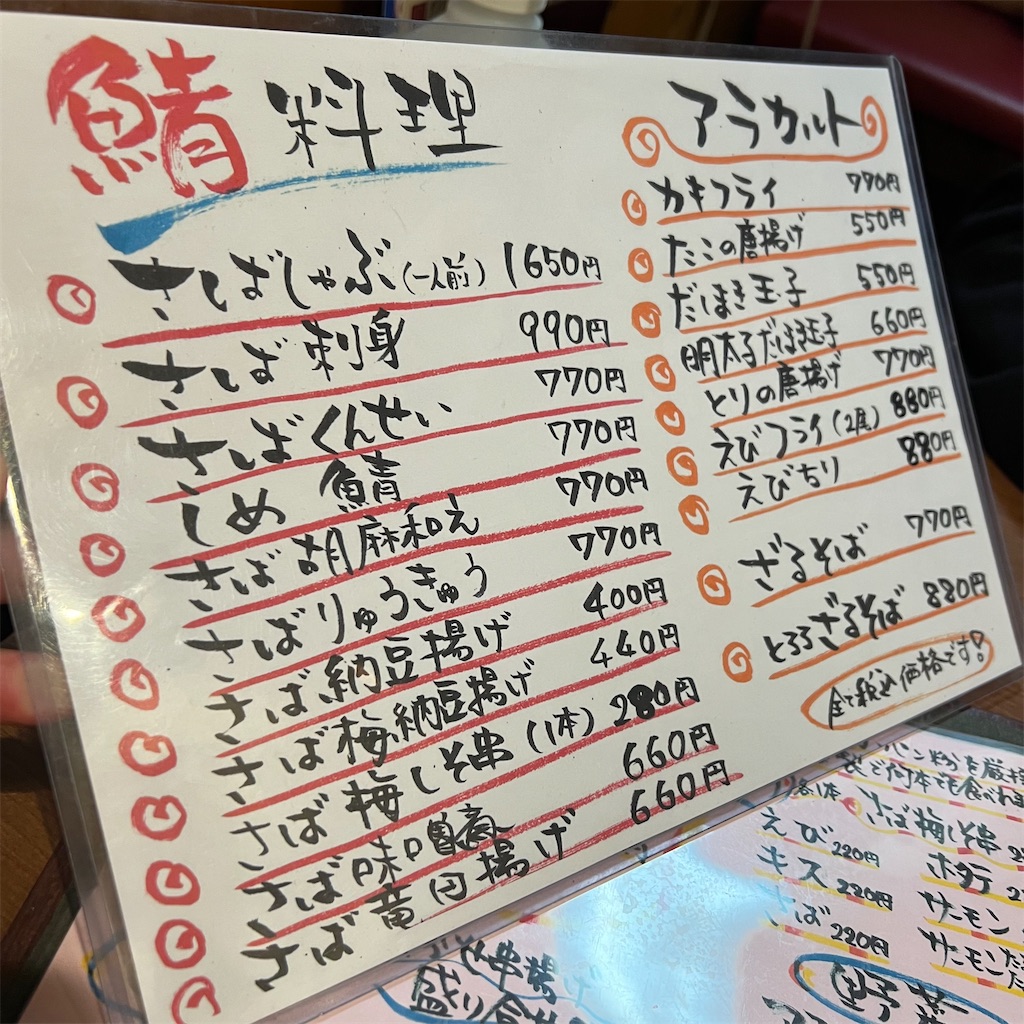 鯖料理
さばしゃぶ(一人前) 1650円
さば刺身 990円
さばくんせい 770円
しめ鯖 770円
さば胡麻和え 770円
さばりゅうきゅう 770円
さば納豆揚げ 400円
さば梅納豆揚げ 440円
さば梅しそ串(1本) 280円
さば味噌煮 660円
さば竜田揚げ 660円
アラカルト
カキフライ 770円
たこの唐揚げ 550円
だしまき玉子 550円
明太子だしまき玉子 660円
とりの唐揚げ 770円
えびフライ(2尾) 880円
えびちり 880円
ざるそば 770円
とろろざるそば 880円
全て税込価格です!
パン粉を厳
で何本でも食べれま
さば梅しそ串
えび 220円
キス 220円
さば 220円
ホタテ
サーモン
サーモン
野菜
串揚げ
盛り合